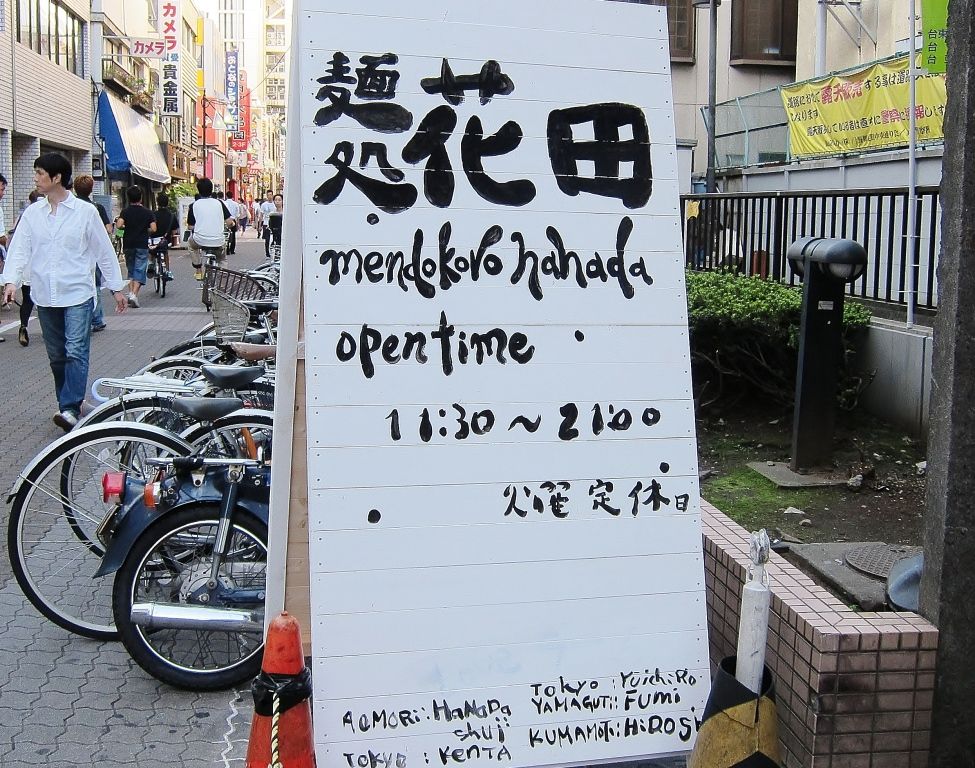 カメラ
カメラ
貴金属
麺処 花田
mendokoro hanada
open time
11:30～21:00
火曜定休日
AOMORi: HaNaDa shuji
TOKYO : KENTA
TOKYO : YUichiRo
YAMAGUTi: FUMi
KUMAMOTO: HiROSHi